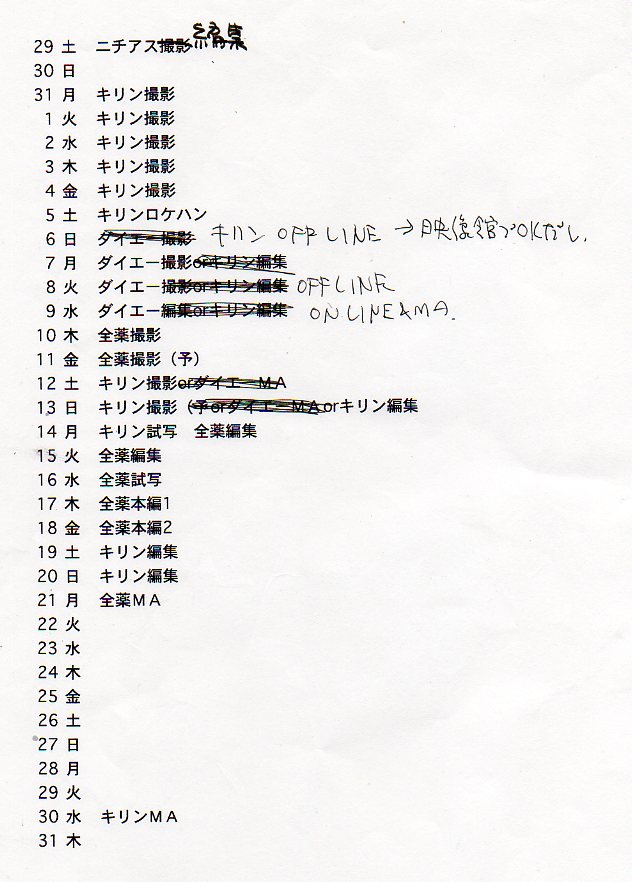 29 土 ニチアス撮影 編集
30 日
31 月 キリン撮影
1 火 キリン撮影
2 水 キリン撮影
3 木 キリン撮影
4 金 キリン撮影
5 土 キリンロケハン
6 日 ダイエー撮影 キリン OFF LINE → 映像館でOKだし.
7 月 ダイエー撮影orキリン編集
8 火 ダイエー撮影orキリン編集 OFFLINE
9 水 ダイエー編集orキリン編集 ONLINE&MA.
10 木 全薬撮影
11 金 全薬撮影（予）
12 土 キリン撮影orダイエーＭＡ
13 日 キリン撮影（予orダイエーＭＡorキリン編集
14 月 キリン試写 全薬編集
15 火 全薬編集
16 水 全薬試写
17 木 全薬本編1
18 金 全薬本編2
19 土 キリン編集
20 日 キリン編集
21 月 全薬ＭＡ
22 火
23 水
24 木
25 金
26 土
27 日
28 月
29 火
30 水 キリンＭＡ
31 木